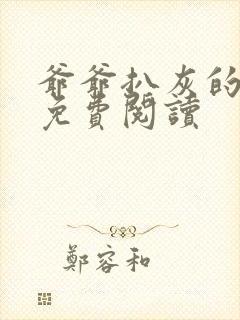 爺爺扒灰的
免費閱讀
鄭容和